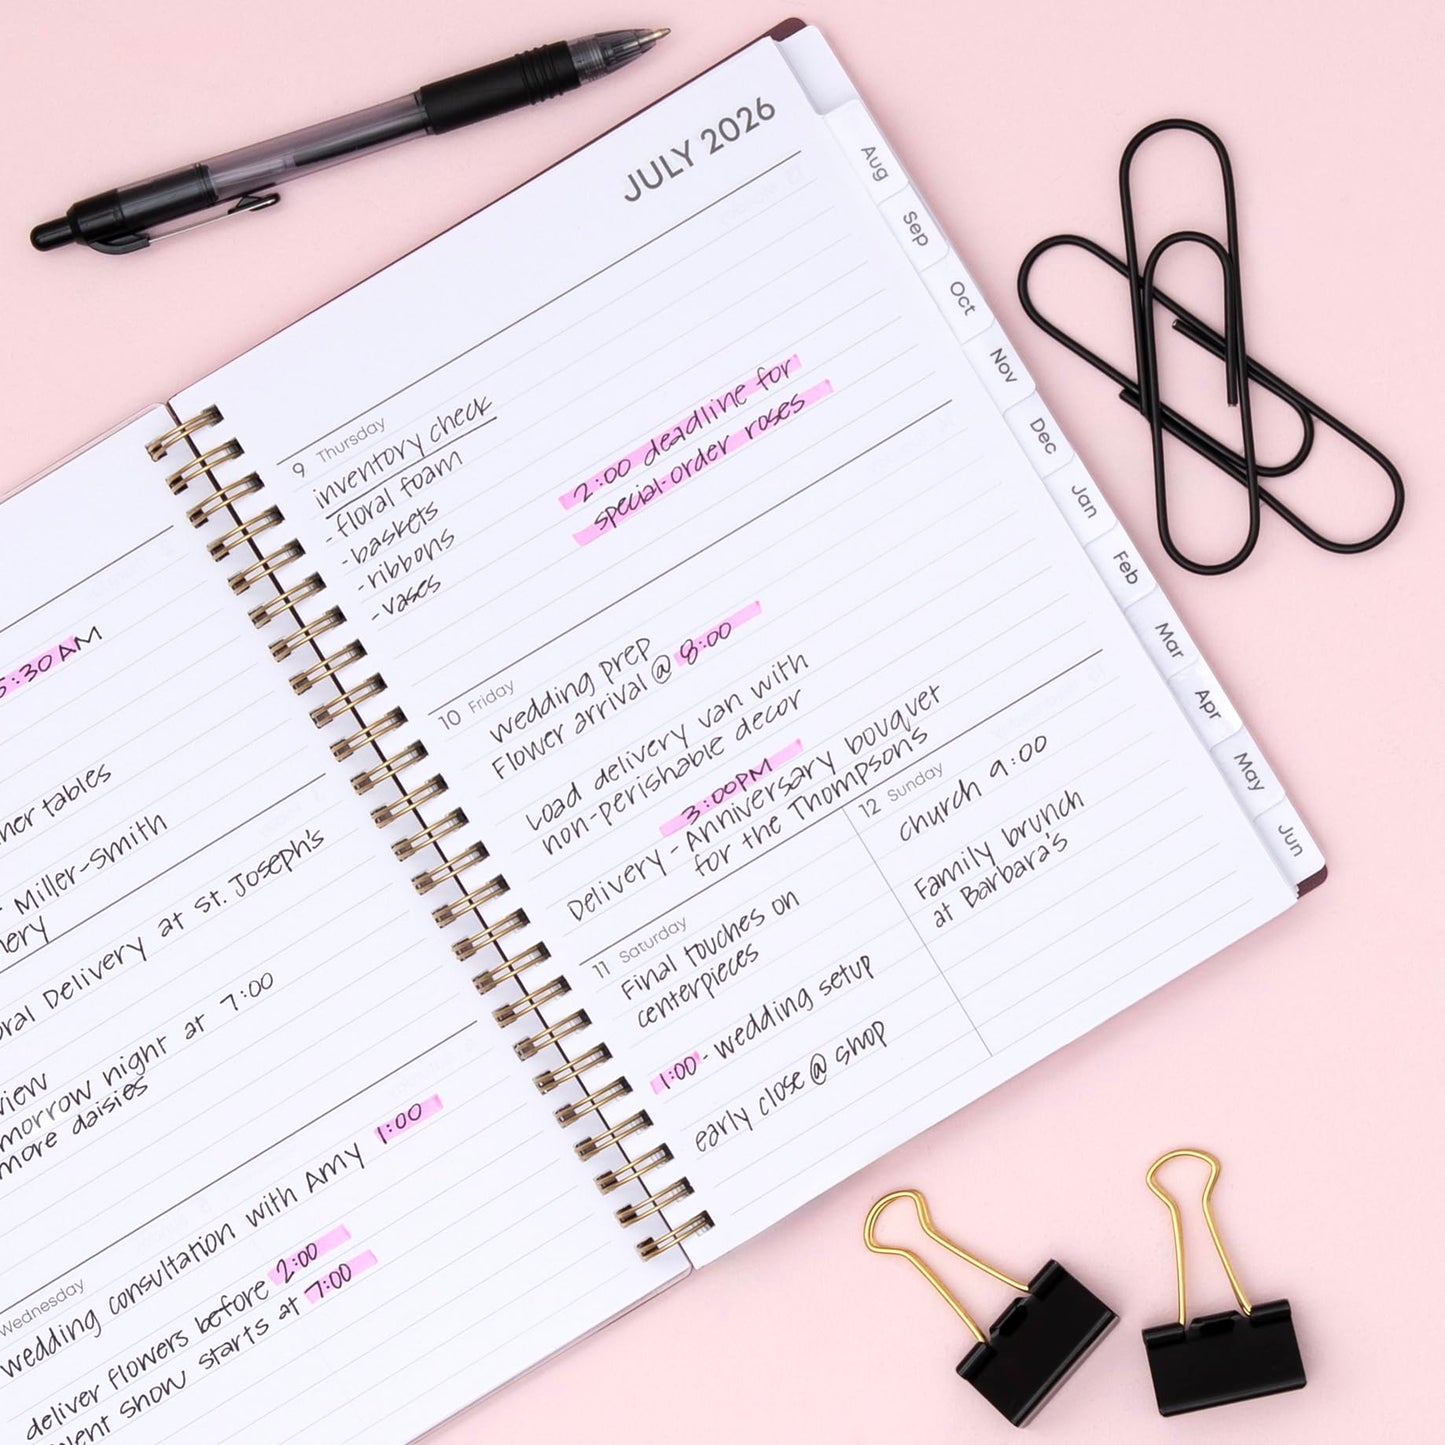 5:30 AM
her tables
Miller-Smith
Delivery at St. Joseph's
view
morrow night at 7:00
more daisies
Wednesday
wedding consultation with Amy 1:00
deliver flowers before 2:00
show starts at 7:00
JULY 2026
9 Thursday
inventory check
- floral foam
- baskets
- ribbons
- vases
2:00 deadline for
special-order roses
10 Friday
wedding prep
Flower arrival @ 8:00
Load delivery van with
non-perishable decor
3:00PM
Delivery - Anniversary bouquet
for the Thompson's
11 Saturday
Final touches on
centerpieces
1:00 - wedding setup
early close @ shop
12 Sunday
church 9:00
Family brunch
at Barbara's
Aug
Sep
Oct
Nov
Dec
Jan
Feb
Mar
Apr
May
Jun